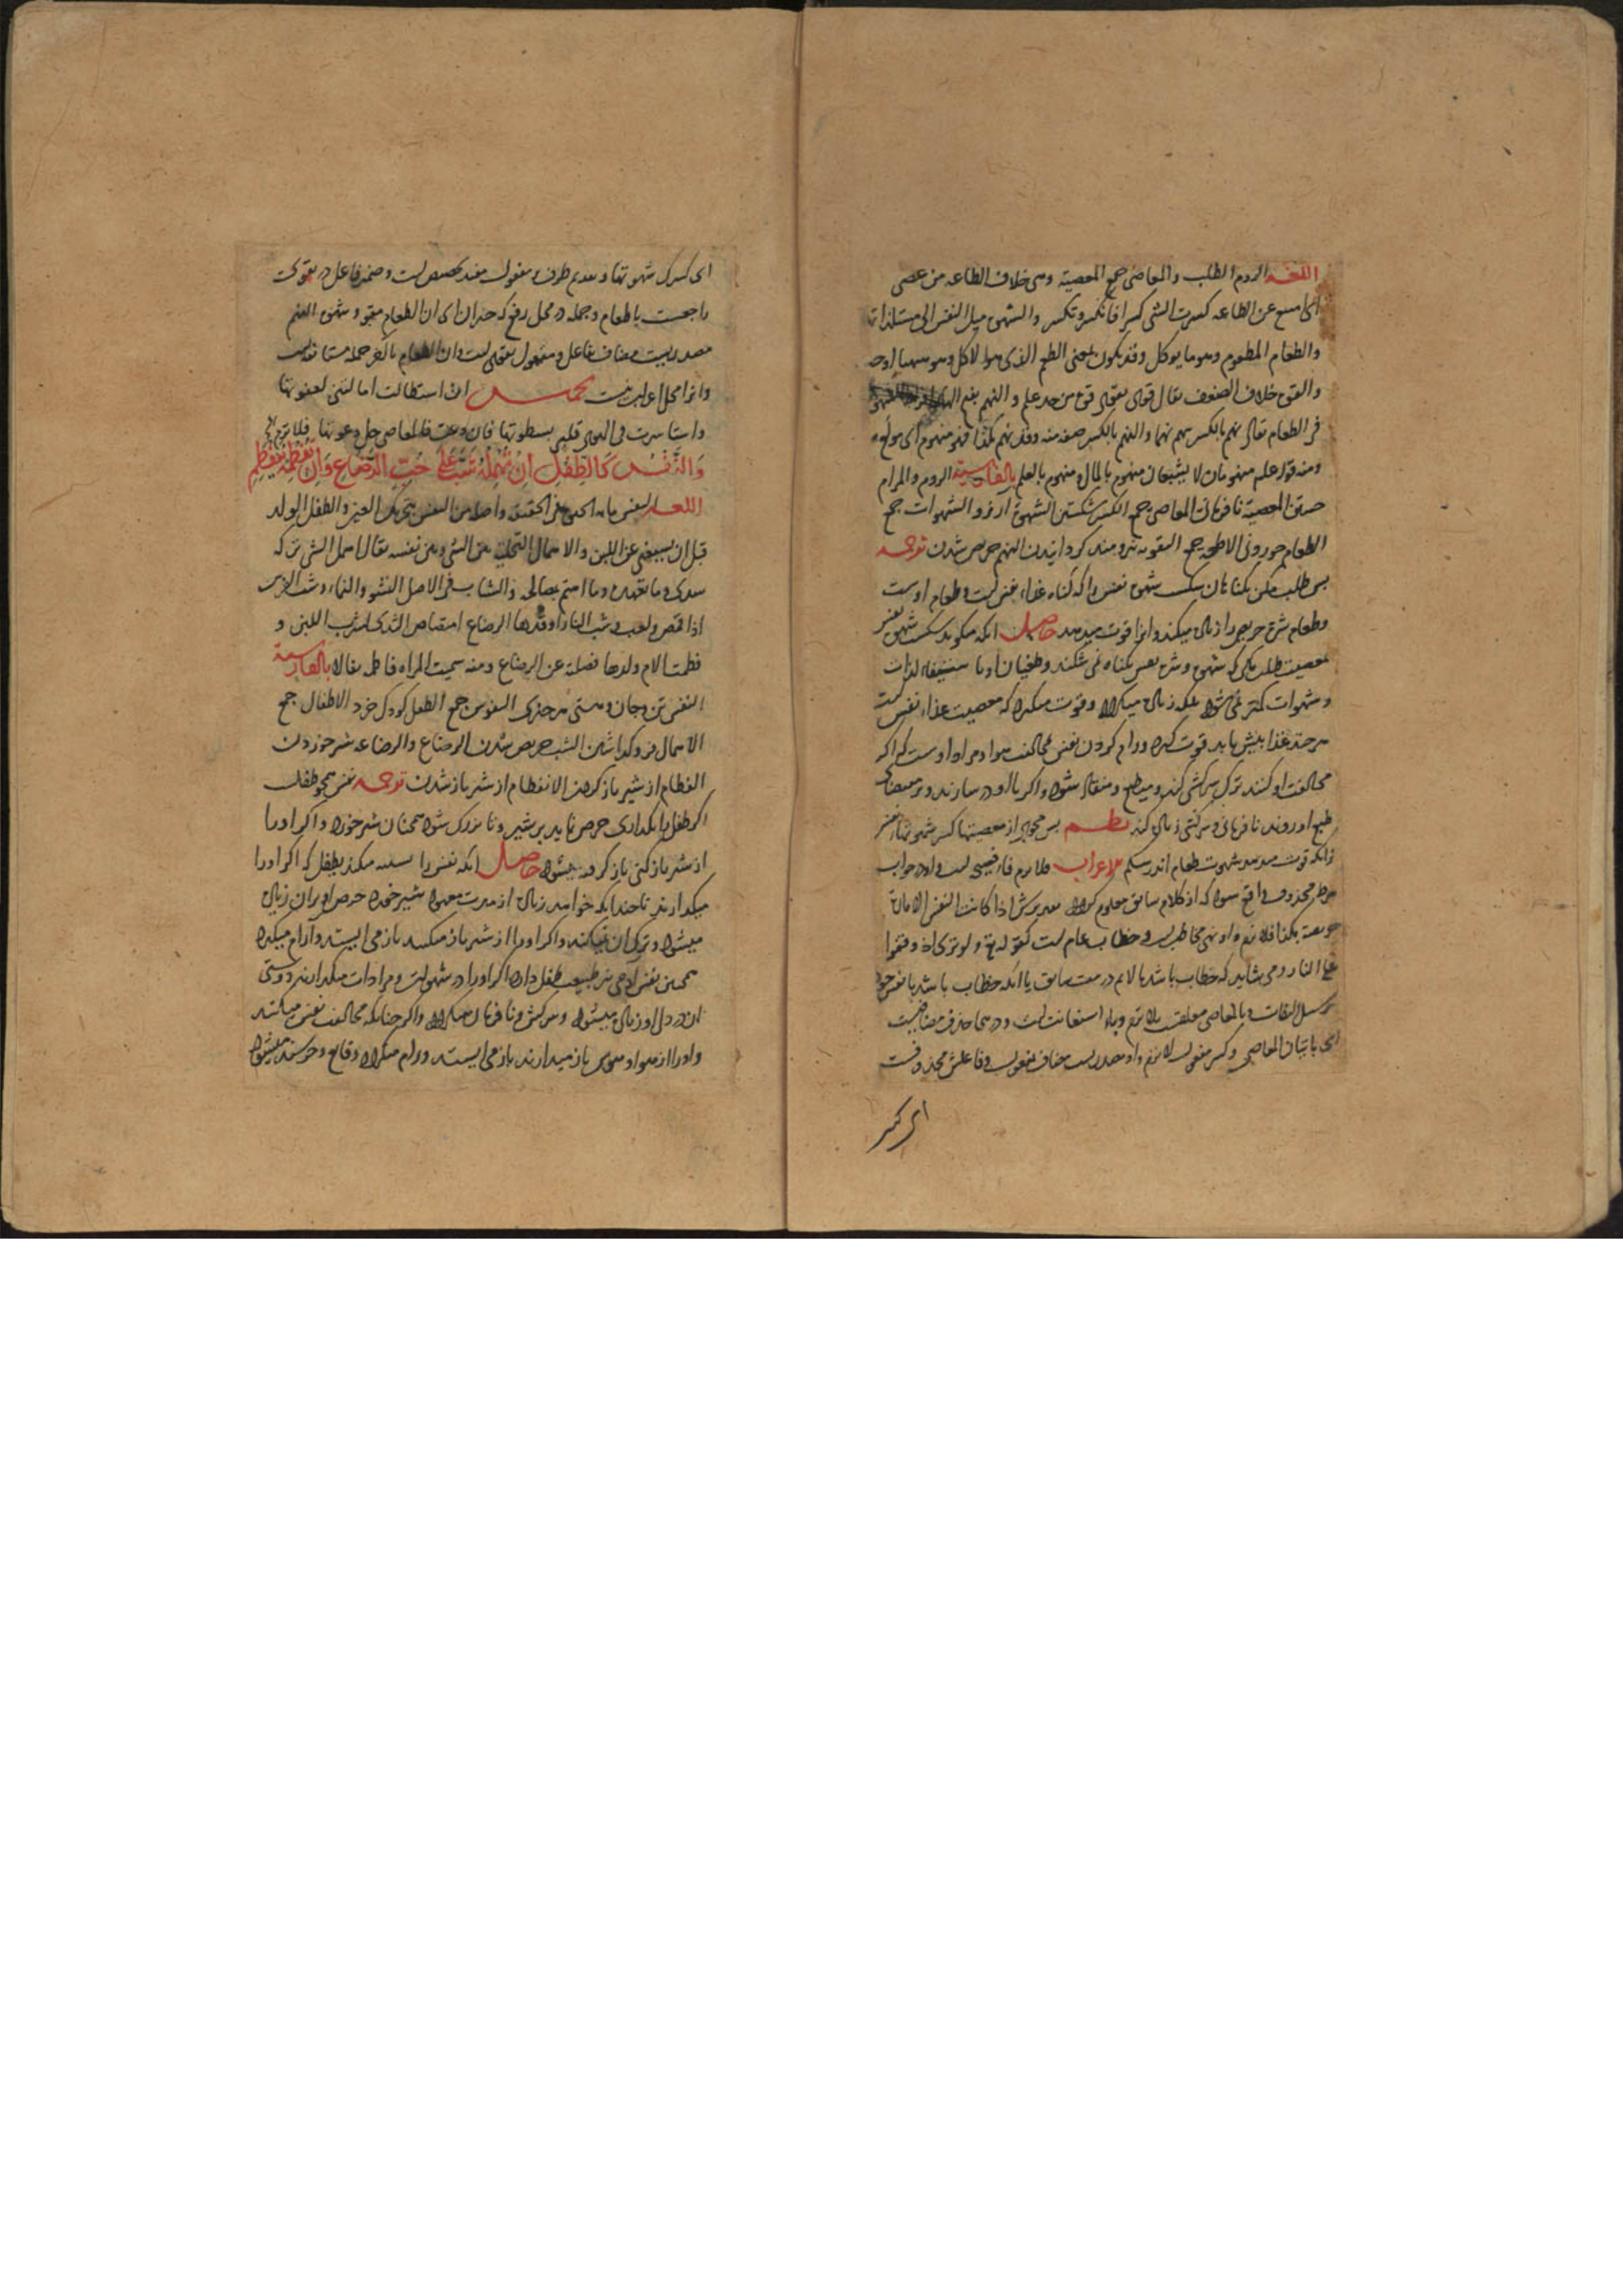 اللغه الروم الطلب والمعاصی جمع المعصیة وهی خلاف الطاعه من عصی
ای امتنع عن الطاعه کسرت الشی کسرا فانکسر وتکسر والشهوة میل النفس الی مستلذاتها
والطعام المطعوم وهو ما یوکل وقد یکون بمعنی الطعم الذی هو الاکل وهو
والقوة خلاف الضعف یقال قوی یقوی قوة من حد علم والنهم بفتح
فی الطعام یقال نهم بالکسر ینهم نهما والنهم بالکسر صفة منه وقد نهم بکذا فهو منهوم ای مولع
ومنه قوله علیه منهومان لا یشبعان منهوم بالمال ومنهوم بالعلم بالفارسیة الروم والمرام
جستن المعصیة نافرمانی المعاصی جمع الکسر شکستن الشهوة آرزو الشهوات جمع
الطعام خوردنی الاطعمه جمع التقویه نیرومند کردانیدن النهم حریص شدن ترجمه
پس طلب مکن بکناهان شکست شهوة نفس را که کناه غذاء نفس است وطعام اوست
وطعام شره حریص را زیاده میکند واو را قوت میدهد حاصل آنکه میکوید شکست شهوة نفس
معصیت طلب مکن که شهوة وشره نفس بکناه نمی شکند وطغیان او باستیفاء لذات
وشهوات کمتر نمی شود بلکه زیاده میکردد وقوت میکیرد که معصیت غذاء نفس است
هر چند غذا بیش یابد قوت کیرد ورام کردن نفس مخالفت هوا ومراد اوست که اکر
مخالفت او کنند ترک سرکشی کند ومطیع ومنقاد شود واکر با او در سازند وبر مقتضای
طبع او روند نافرمانی وسرکشی زیاده کند نظم پس مجوی از معصیتها کسر شهوتهاء نفس
زانکه قوت میدهد شهوت طعام اندر شکم الاعراب فلا ترم فاء فصیحه است واو در جواب
شرط محذوف واقع شود که از کلام سابق معلوم کردد تقدیرش اذا کانت النفس الامارة
موصوفة بکذا فلا ترم واو نهی مخاطب است وخطاب عام است کقوله تع ولو تری اذ وقفوا
علی النار ومی شاید که خطاب باشد با لائم در بیت سابق یا آنکه خطاب باشد با نفس خود
بر سبیل التفات وبالمعاصی متعلقست بلا ترم وباء استعانت است ودرینجا حذف مضافیست
ای باتیان المعاصی وکسر مفعول لا ترم واو مصدریست مضاف بمفعول وفاعلش محذوفست
ای کسر
ای کسرک شهوتها وتقدیم ظرف بر مفعول مفید تخصیص است وضمیر فاعل در یقوی
راجعست با طعام وجمله در محل رفع که خبر ان ای ان الطعام مقو وشهوة النهم
مصدریست مضاف بفاعل ومفعول یقوی است وان الطعام بالکسر جمله مستانفه است
واو را محل اعراب نیست
واستاسرت فی الهوی قلبی بسطوتها فان دعت فالمعاصی جل دعوتها فلا ترم الخ
وَالنَّفْسُ کَالطِّفْلِ اِنْ تُهْمِلْهُ شَبَّ عَلٰی حُبِّ الرَّضَاعِ وَاِنْ تَفْطِمْهُ یَنْفَطِمِ
اللغه النفس ما به الحی حی فی الحقیقة واصلها من النفس بتحریک العین والطفل الولد
قبل ان یستغنی عن اللبن والاهمال التخلیة بین الشی وبین نفسه یقال اهمل الشی ترکه
سدی وما تعهده وما اهتم بمصالحه والشباب فی الاصل النشو والنماء وشب الفرس
اذا قمص ولعب وشب النار اوقدها الرضاع امتصاص الثدی لشرب اللبن و
فطمت الام ولدها فصلته عن الرضاع ومنه سمیت المراه فاطمه بالفارسیة
النفس تن وجان وهستی هر چیزی النفوس جمع الطفل کودک خرد الاطفال جمع
الاهمال فرو کذاشتن الشب حریص شدن الرضاع والرضاعه شیر خوردن
الفطام از شیر باز کردن الانفطام از شیر باز شدن ترجمه نفس همچو طفل
اکر طفل را بکذاری حرص نماید بر شیر وتا بزرک شود همچنان شیر خورد واکر او را
از شیر باز کنی باز کرده میشود حاصل آنکه نفس را تشبیه میکند بطفل که اکر او را
میکذارند تا چندانکه خواهد زیاده از مدت معهود شیر خورد حرص او بر آن زیاده
میشود وترک آن نمیکند واکر او را از شیر باز میکنند باز می ایستد وآرام میکیرد
همچنین نفس آدمی نیز طبیعت طفل دارد اکر او را در شهوات ومرادات میکذارند دوستی
آن در دل او زیاده میشود وسرکش ونافرمان میکردد واکر چنانکه مخالفت نفس میکنند
واو را از هوا وهوس باز میدارند باز می ایستد ورام میکردد وقانع وخرسند میشود